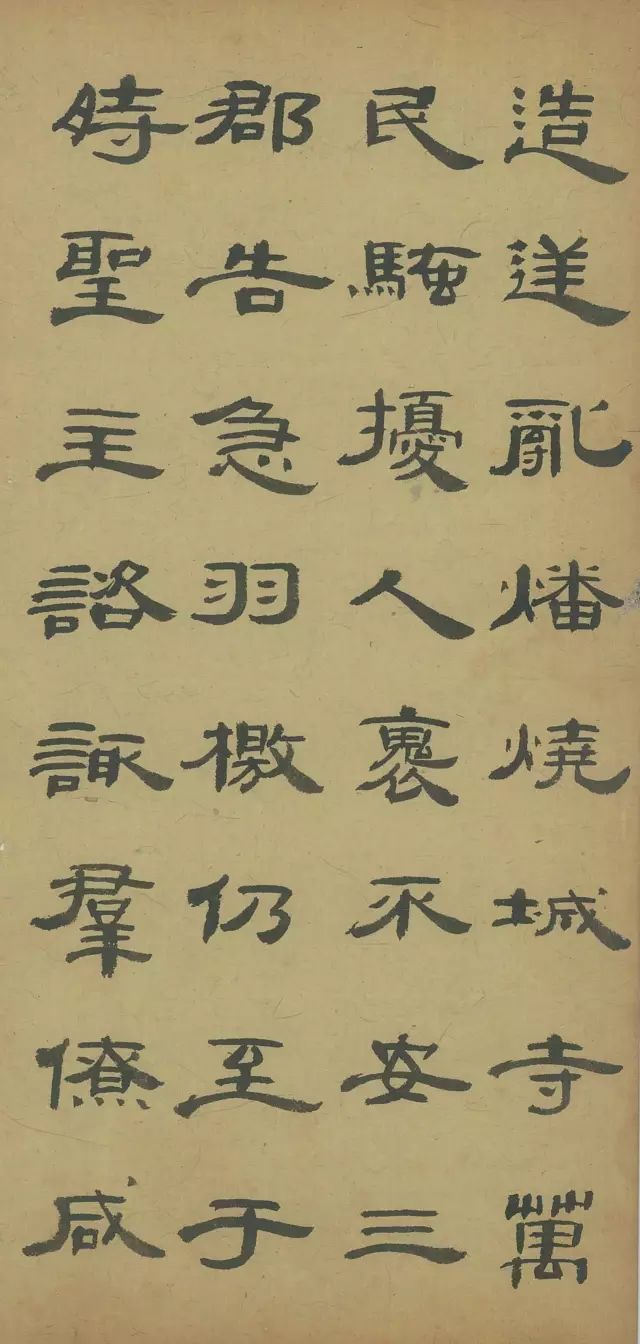 造逆亂燔燒城寺萬
民騷擾人裹不安三
郡告急羽檄仍至于
時聖主諮諏羣僚咸